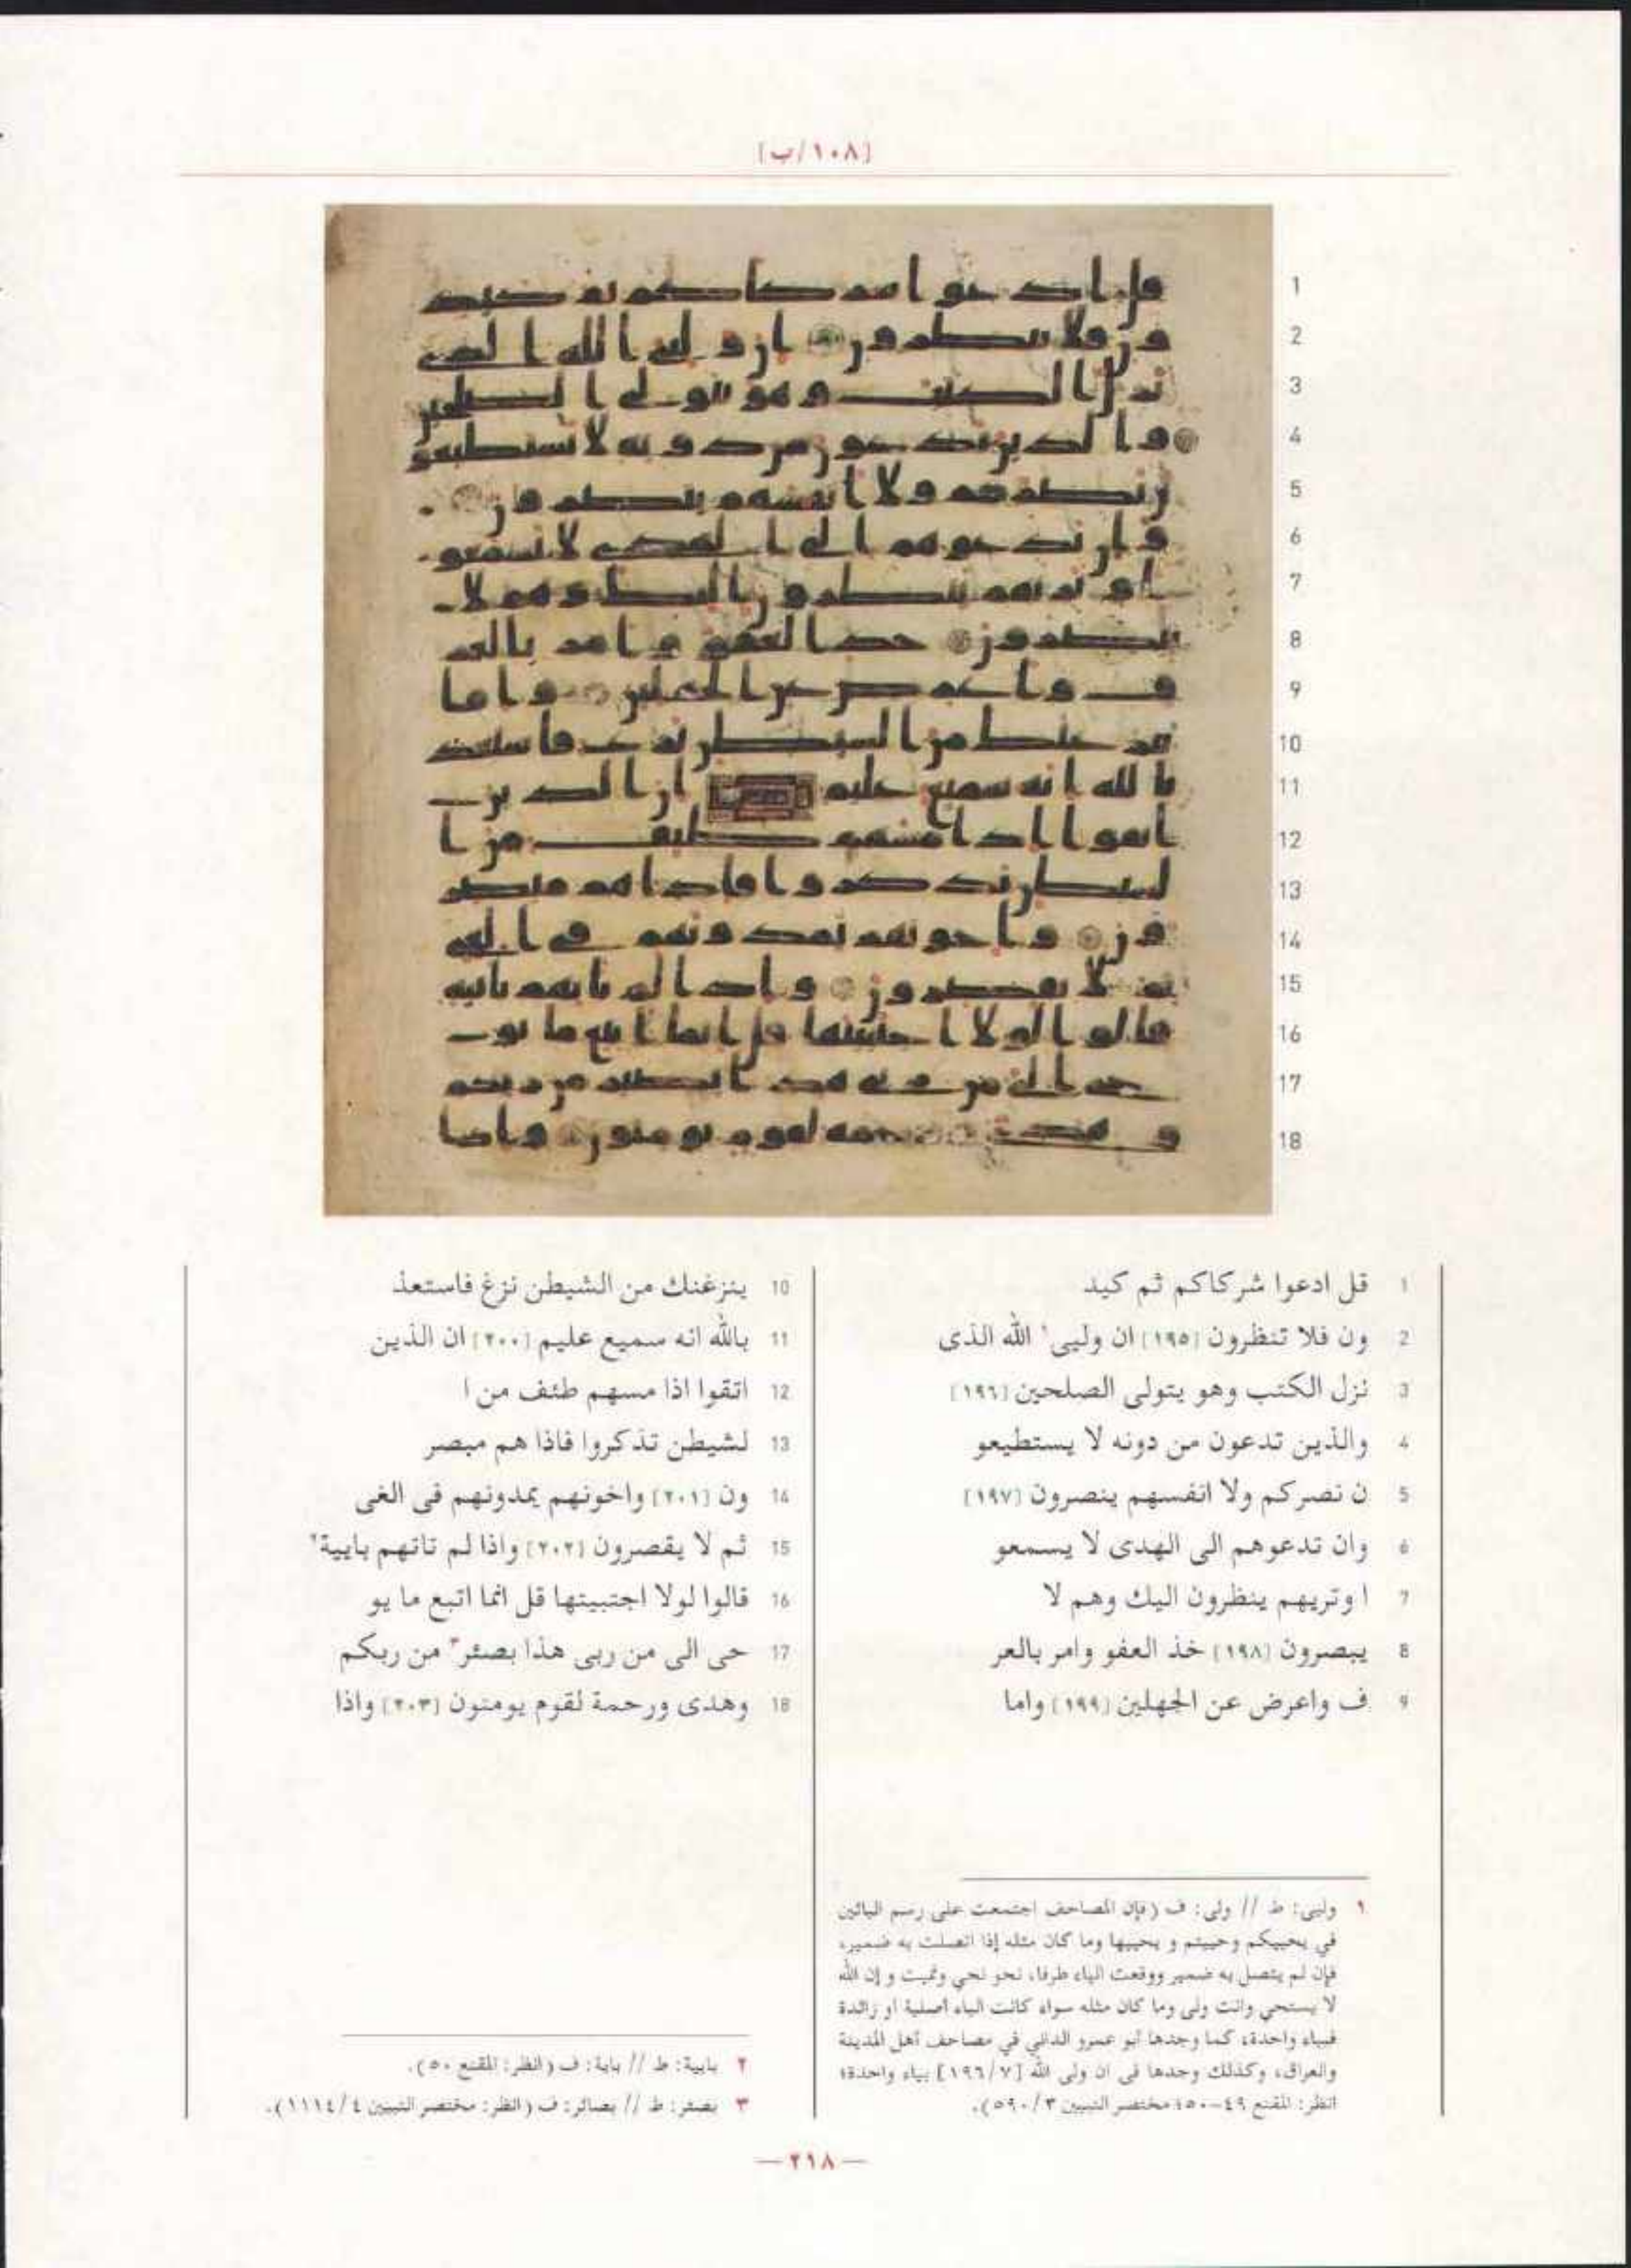 [١٠٨/ب]
1 قل ادعوا شركاكم ثم كيد
2 ون فلا تنظرون [١٩٥] ان وليى١ الله الذى
3 نزل الكتب وهو يتولى الصلحين [١٩٦]
4 والذين تدعون من دونه لا يستطيعو
5 ن نصركم ولا انفسهم ينصرون [١٩٧]
6 وان تدعوهم الى الهدى لا يسمعو
7 ا وتريهم ينظرون اليك وهم لا
8 يبصرون [١٩٨] خذ العفو وامر بالعر
9 ف واعرض عن الجهلين [١٩٩] واما
10 ينزغنك من الشيطن نزغ فاستعذ
11 بالله انه سميع عليم [٢٠٠] ان الذين
12 اتقوا اذا مسهم طئف من ا
13 لشيطن تذكروا فاذا هم مبصر
14 ون [٢٠١] واخونهم يمدونهم فى الغى
15 ثم لا يقصرون [٢٠٢] واذا لم تاتهم بايية٢
16 قالوا لولا اجتبيتها قل انما اتبع ما يو
17 حى الى من ربى هذا بصئر٣ من ربكم
18 وهدى ورحمة لقوم يومنون [٢٠٣] واذا
١ وليى: ط // ولى: ف (فإن المصاحف اجتمعت على رسم اليائين
في يحييكم وحييتم و يحييها وما كان مثله إذا اتصلت به ضمير،
فإن لم يتصل به ضمير ووقعت الياء طرفا، نحو نحي ونميت و إن الله
لا يستحي وانت ولى وما كان مثله سواء كانت الياء أصلية أو زائدة
فبياء واحدة، كما وجدها أبو عمرو الداني في مصاحف أهل المدينة
والعراق، وكذلك وجدها فى ان ولى الله [١٩٦/٧] بياء واحدة؛
انظر: المقنع ٤٩-٥٠؛ مختصر التبيين ٥٩٠/٣).
٢ بايية: ط // باية: ف (انظر: المقنع ٥٠).
٣ بصئر: ط // بصائر: ف (انظر: مختصر التبيين ١١١٤/٤).
— ٢١٨ —